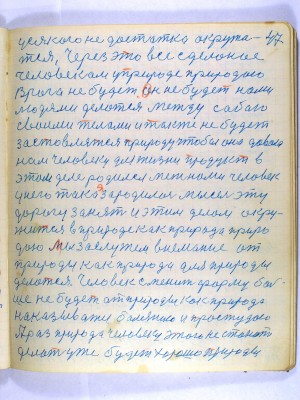 усякого не достатка окружа- 47
тся, Через это все сделаное
человекам у природе природою
врога не будет. Он не будет нами
людями делотся между сабою
своими телами и также не будет
застовлятся природу чтобы она довала
нам человеку для жизни продукт в
этом деле родился меж нами человек
у него така зародилась мысль эту
дорогу занят и этим делом окру-
жится в природе как природа приро
дою Мы заслужем внемание от
природы как природа для природы
делотся Человек сменит форму бол-
ше не будет от природы как природа
наказыватся болезнию и простудою
А раз природа человеку этого не станет
делат уже будет хорошо природы